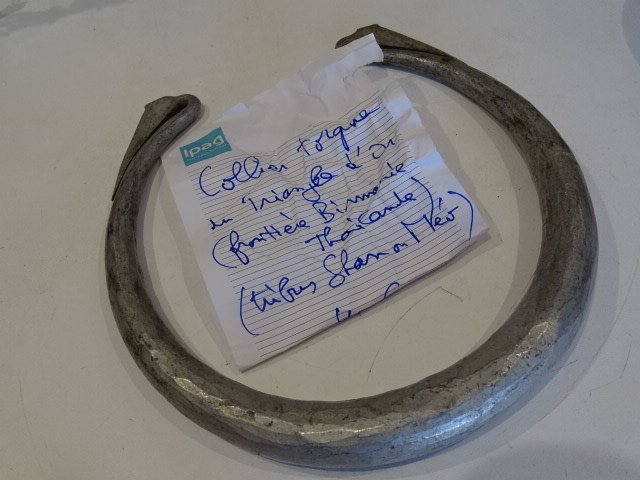 Ipag
Collier torque
du Triangle d'Or
(frontière Birmanie
Thaïlande)
(tribus Shan ou Méo)